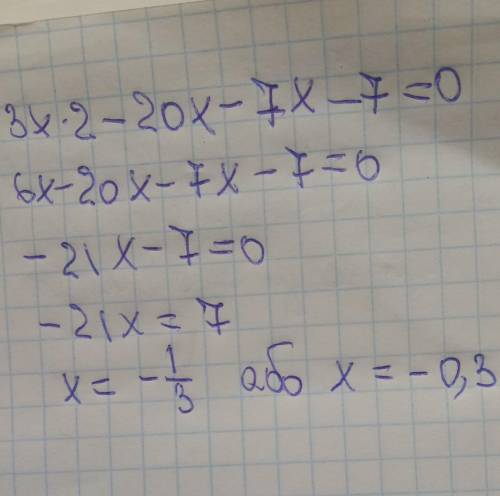 3x·2-20x-7x-7=0
6x-20x-7x-7=0
-21x-7=0
-21x=7
x=-1/3 або x=-0,3